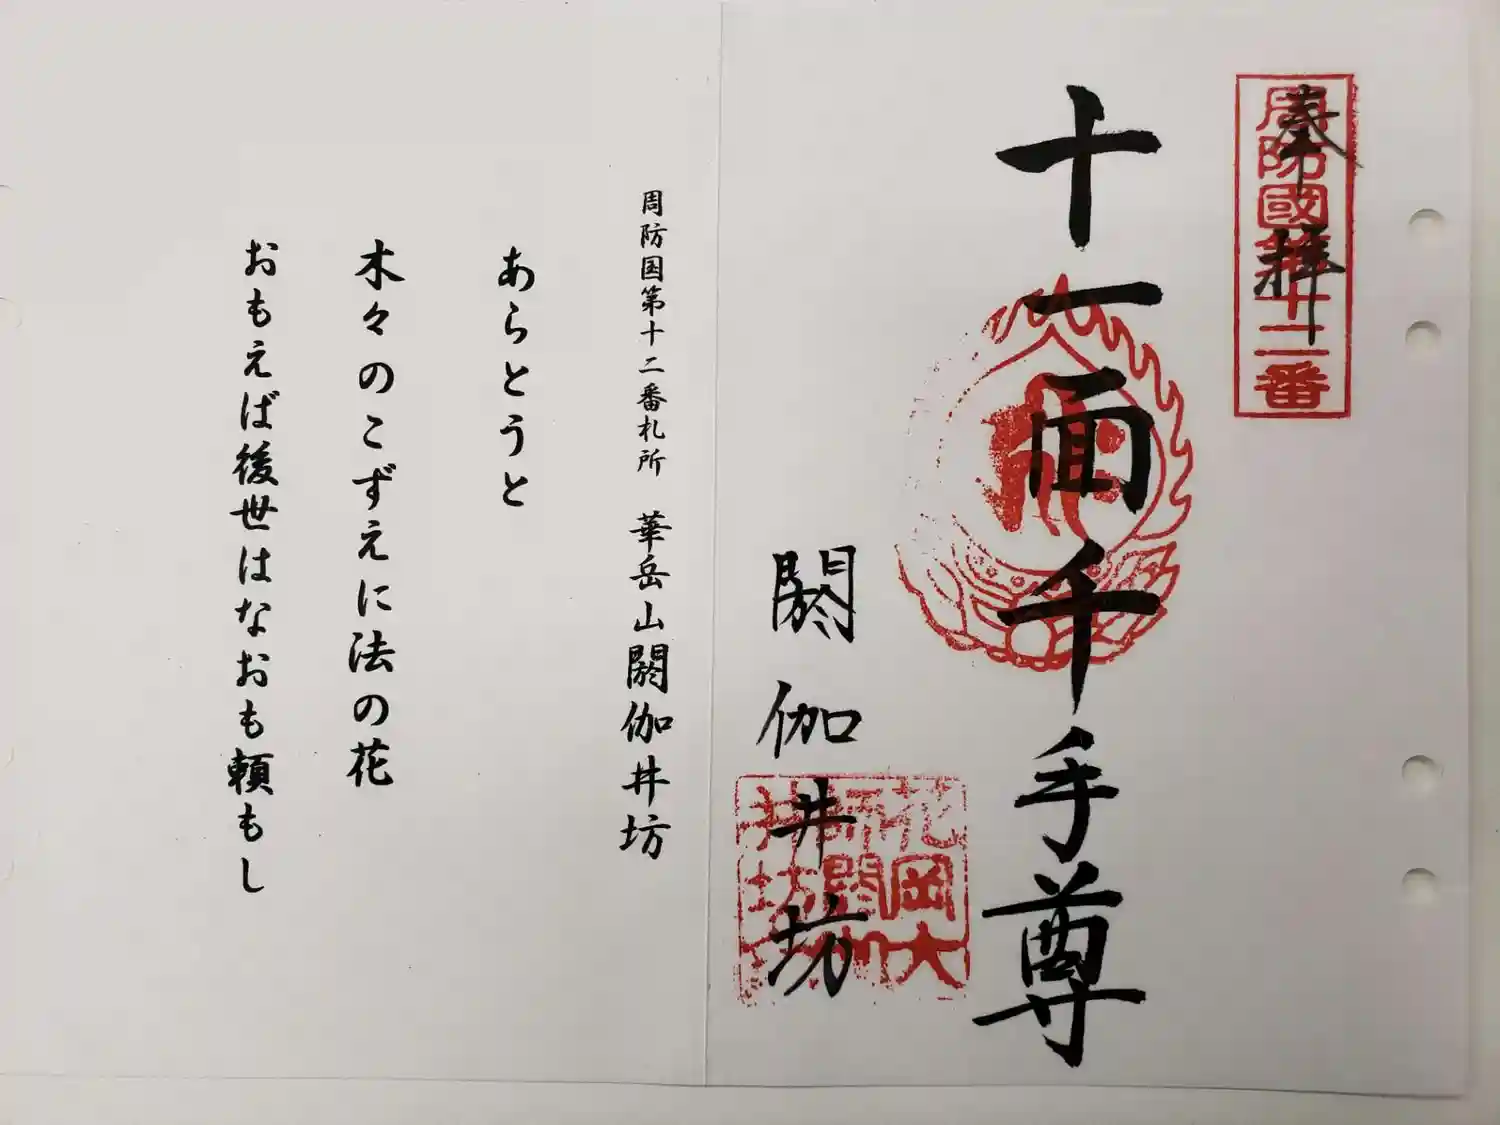 周防國第十二番
奉拝
十一面千手尊
閼伽井坊
花岡大
師閼伽
井坊
周防国第十二番札所　華岳山閼伽井坊
あらとうと
木々のこずえに法の花
おもえば後世はなおも頼もし